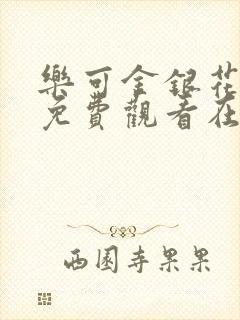 樂可金銀花
免費觀看在
西園寺果果